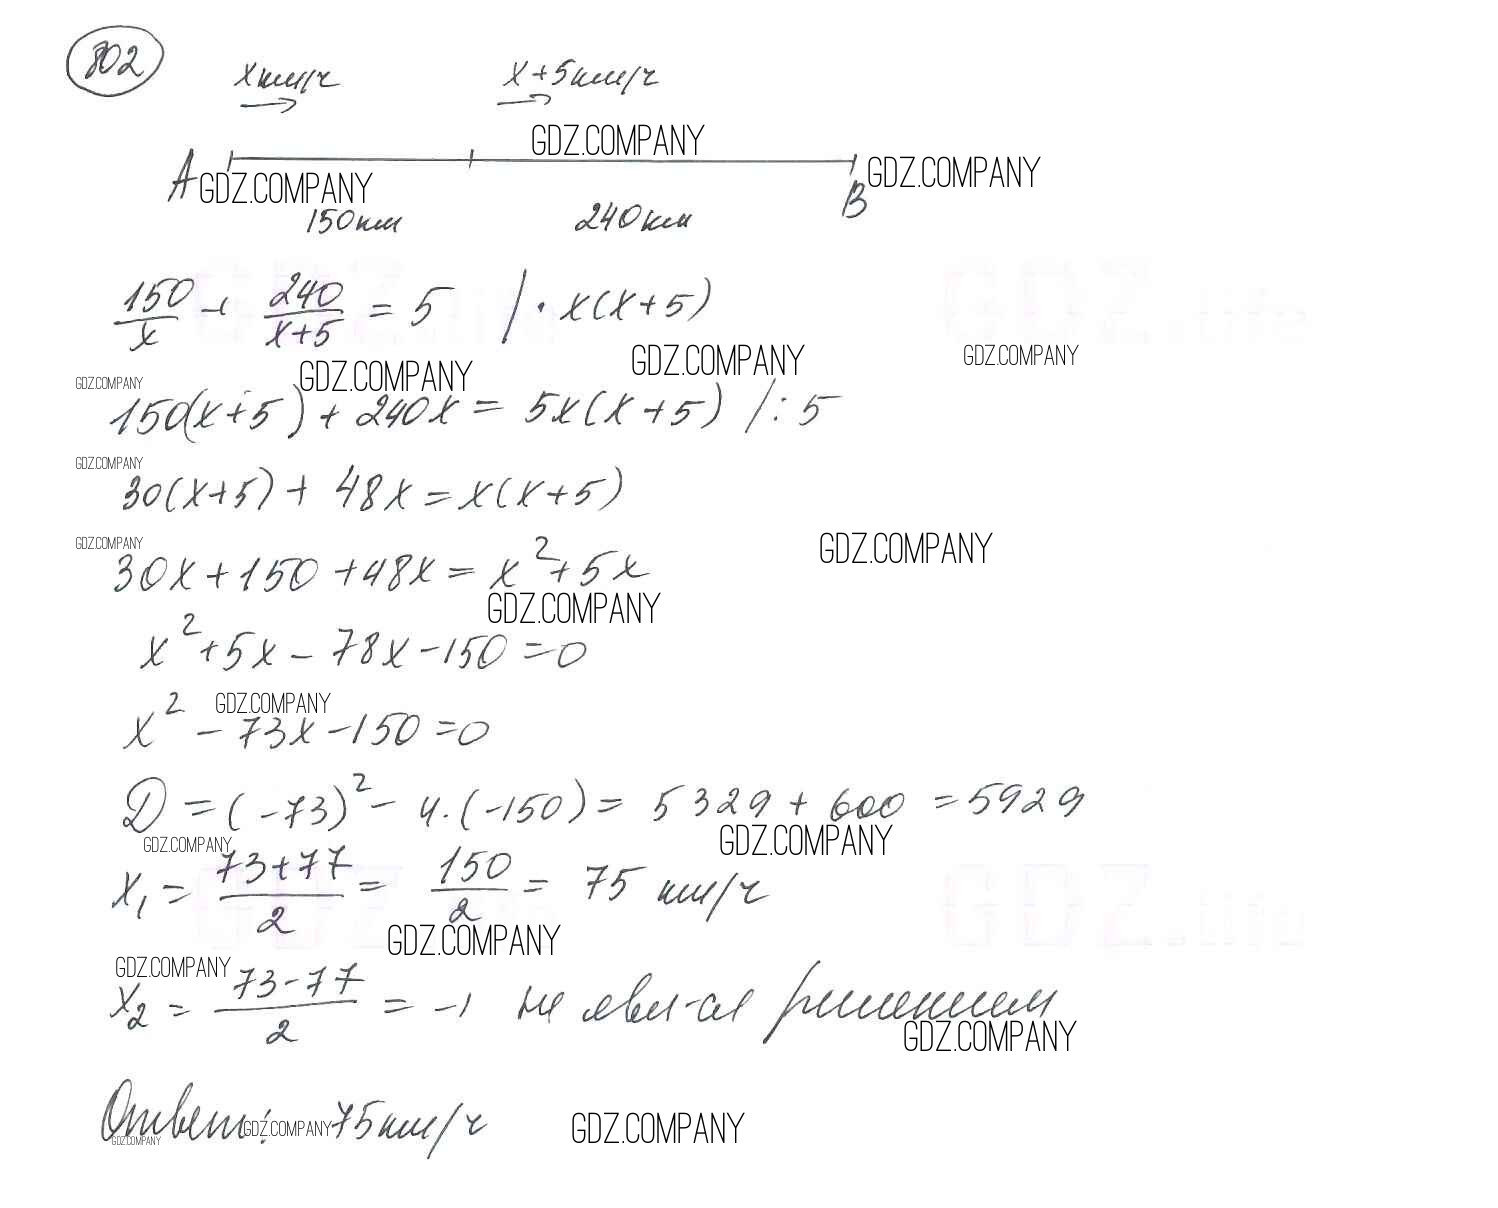 802
x км/ч x+5 км/ч
GDZ.COMPANY
A GDZ.COMPANY B GDZ.COMPANY
150 км 240 км
150/x + 240/(x+5) = 5 | · x(x+5)
GDZ.COMPANY GDZ.COMPANY GDZ.COMPANY GDZ.COMPANY
150(x+5) + 240x = 5x(x+5) |:5
GDZ.COMPANY
30(x+5) + 48x = x(x+5)
GDZ.COMPANY GDZ.COMPANY
30x+150+48x = x²+5x
GDZ.COMPANY
x²+5x-78x-150=0
GDZ.COMPANY
x²-73x-150=0
D=(-73)²-4·(-150)=5329+600=5929
GDZ.COMPANY GDZ.COMPANY
x₁ = (73+77)/2 = 150/2 = 75 км/ч
GDZ.COMPANY
GDZ.COMPANY
x₂ = (73-77)/2 = -1 не явл-ся решением
GDZ.COMPANY
Ответ: 75 км/ч
GDZ.COMPANY GDZ.COMPANY GDZ.COMPANY